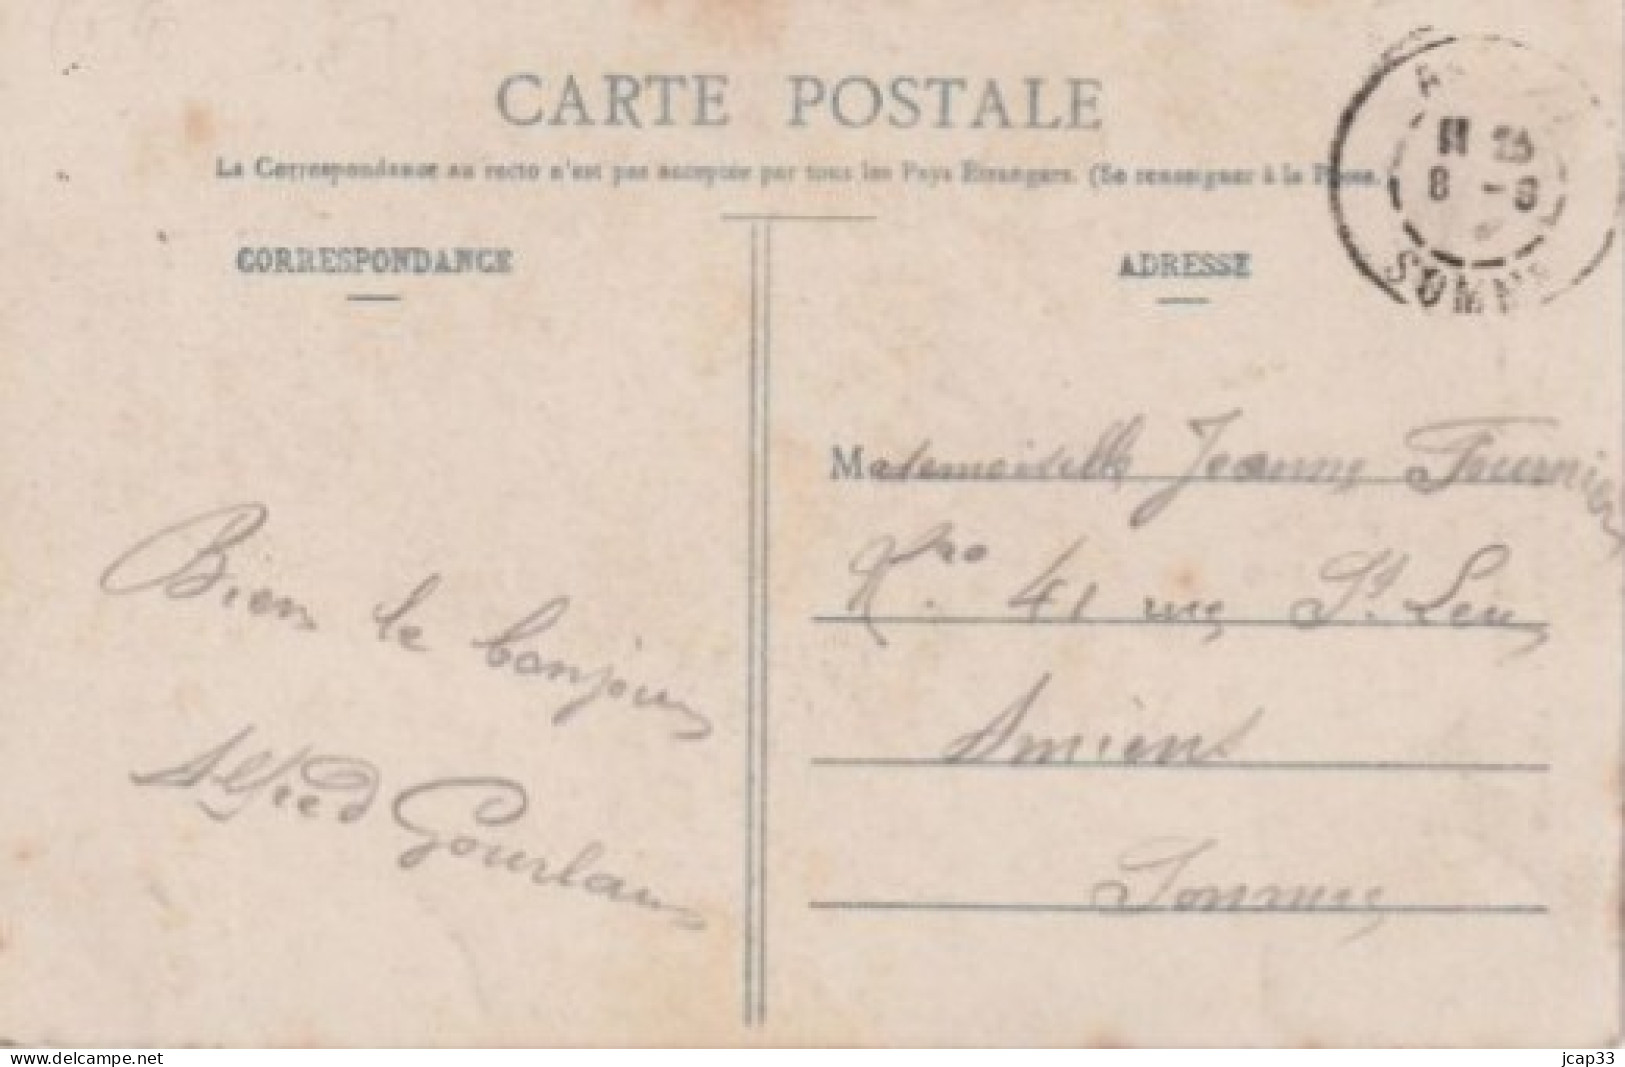 CARTE POSTALE
La Correspondance au recto n'est pas acceptée par tous les Pays Etrangers. (Se renseigner à la Poste.
CORRESPONDANCE
ADRESSE
SOMME
8 - 8
Mademoiselle Jeanne Fournier
Nro 41 rue St Leu
Amiens
Somme
Bien le bonjour
Alfred Gourlain
www.delcampe.net
jcap33